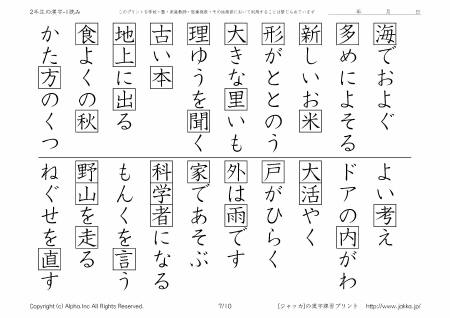 2年生の漢字-1読み
このプリントを学校・塾・家庭教師・医療機関・その他施設において利用することは禁じられています
年 月 日
海でおよぐ
多めによそる
新しいお米
形がととのう
大きな里いも
理ゆうを聞く
古い本
地上に出る
食よくの秋
かた方のくつ
よい考え
ドアの内がわ
大活やく
戸がひらく
外は雨です
家であそぶ
科学者になる
もんくを言う
野山を走る
ねぐせを直す
Copyright (c) Alpha.Inc All Rights Reserved.
7/10
[ジャッカ]の漢字練習プリント http://www.jakka.jp/